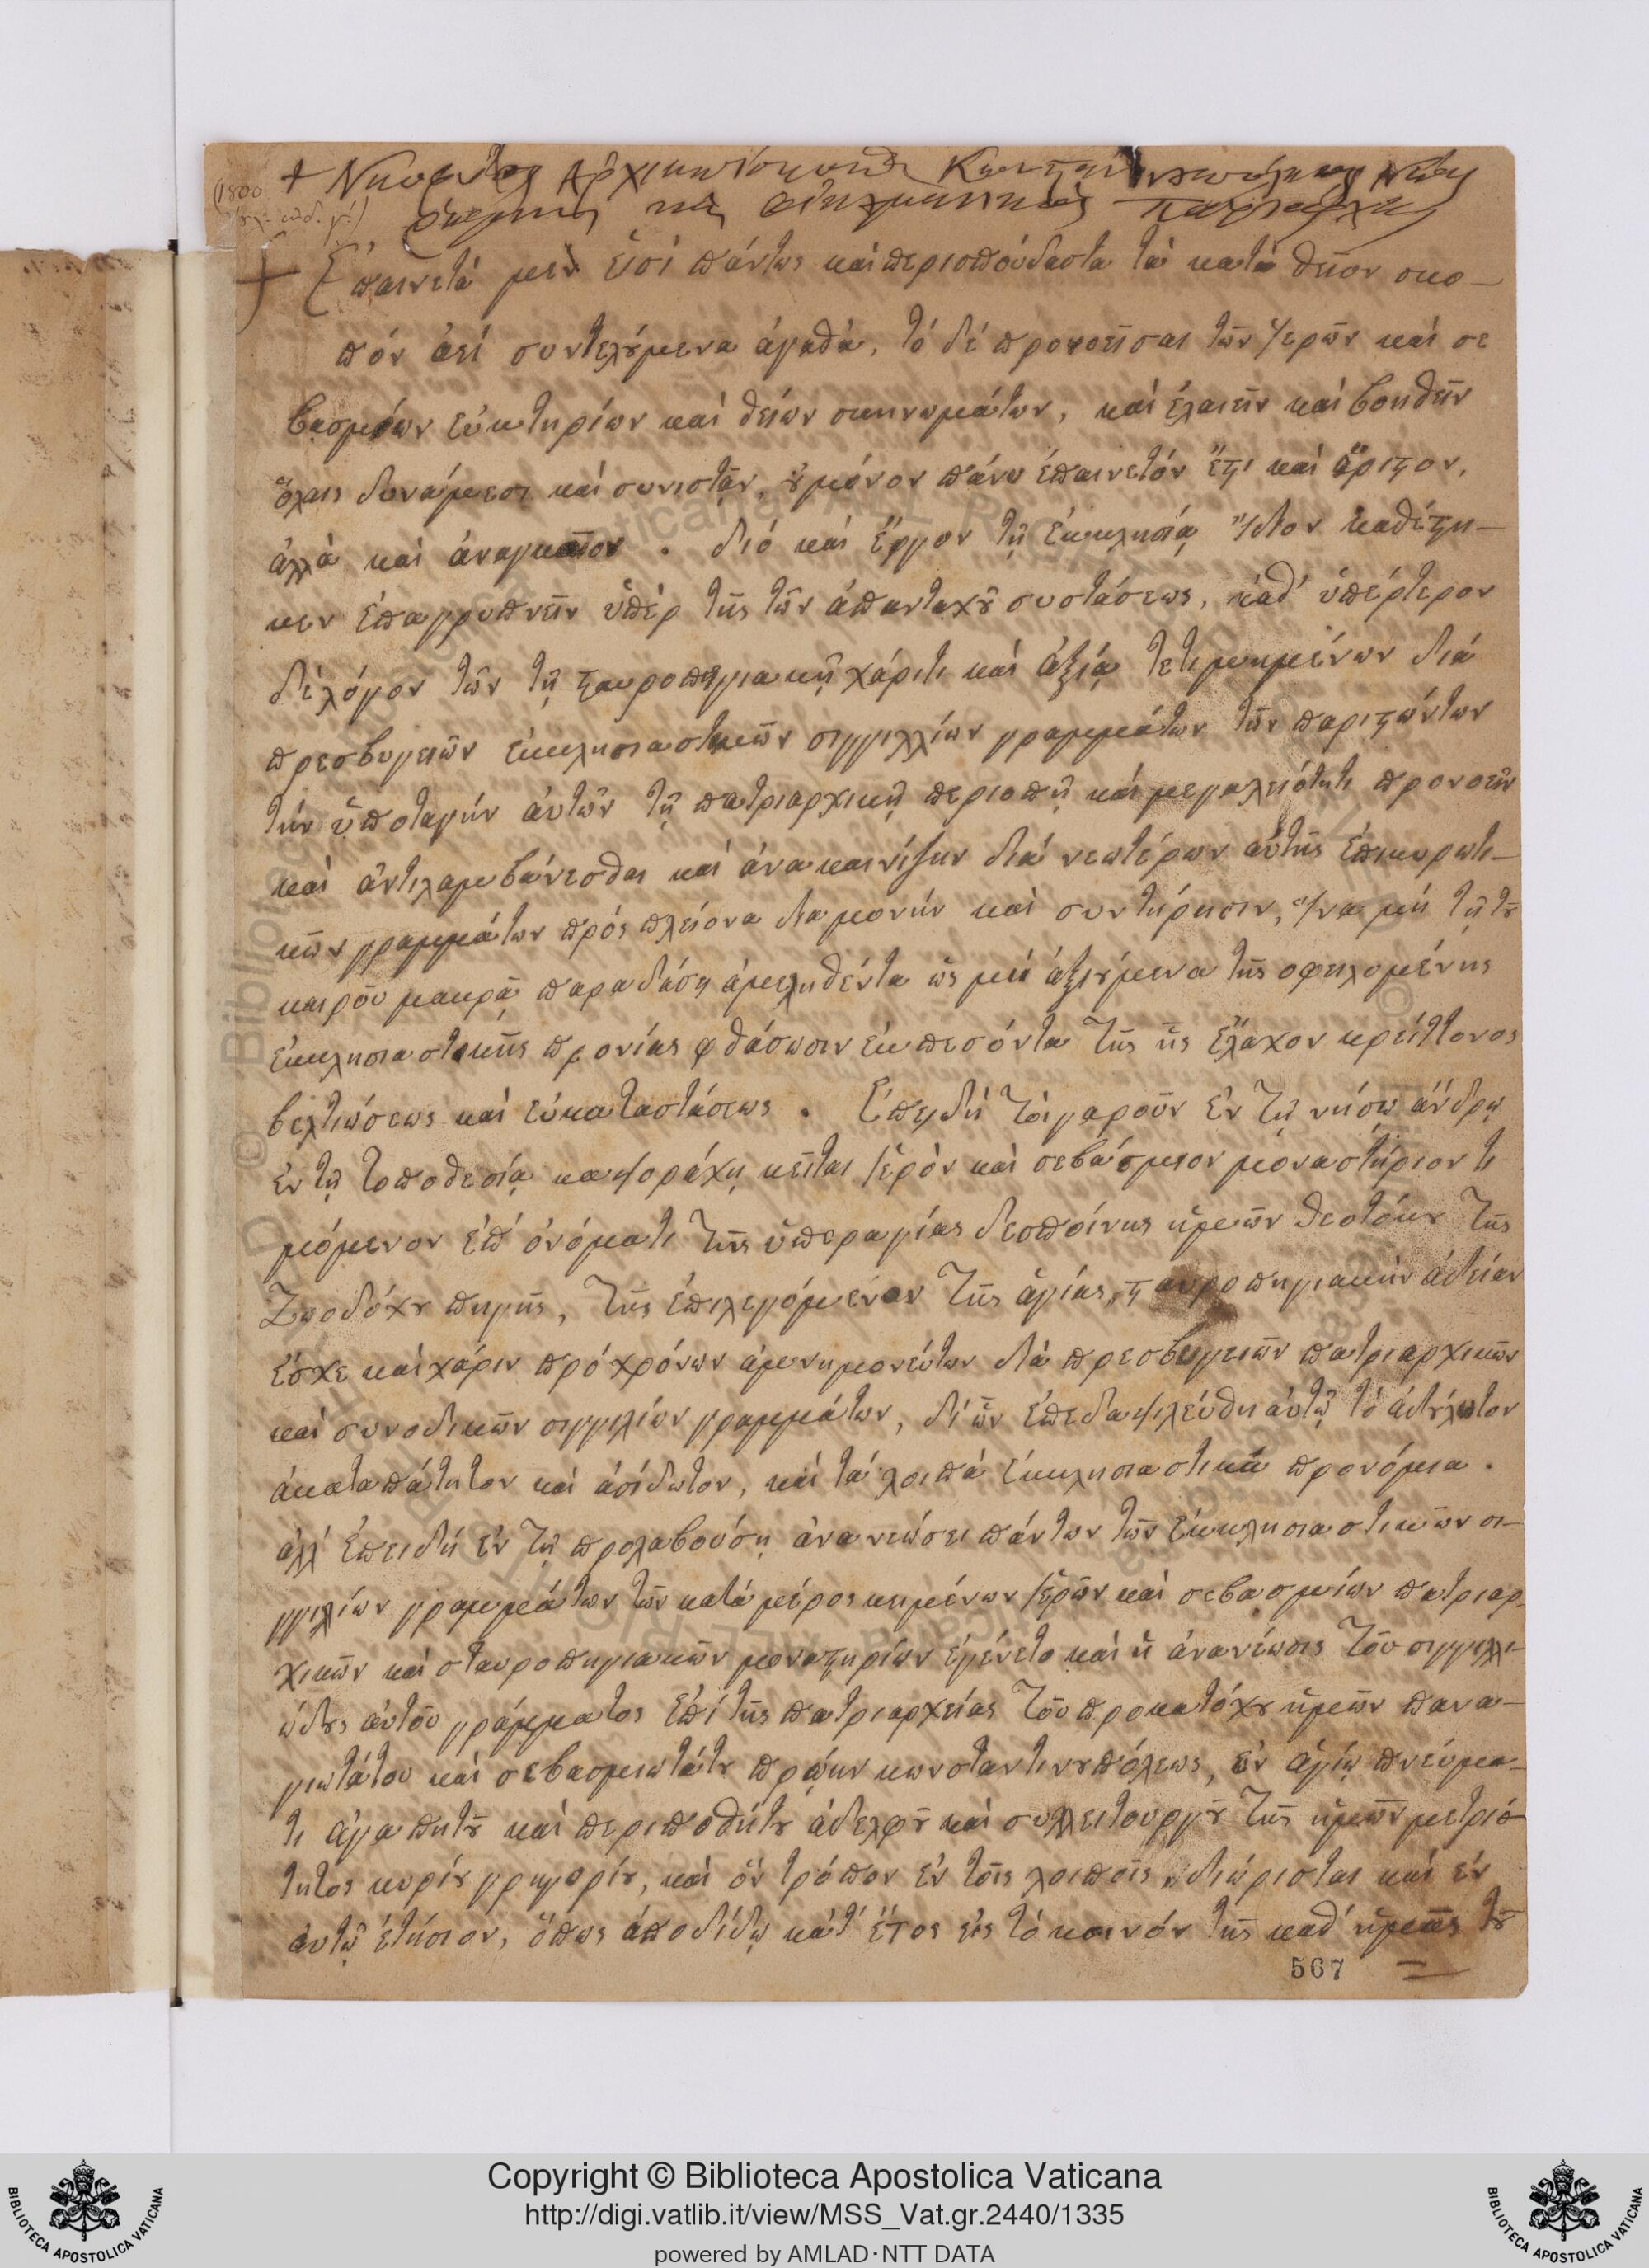 (1800
+ Νεόφυτος Ἀρχιεπίσκοπος Κωνσταντινουπόλεως Νέας
Ῥώμης καὶ Οἰκουμενικὸς Πατριάρχης
+ Ἐπαινετὰ μὲν εἰσὶ πάντως καὶ περισπούδαστα τὰ κατὰ θεῖον σκο-
πόν ἀεί συντελούμενα ἀγαθά, τό δέ προνοεῖσαι τῶν ἱερῶν καί σε
βασμίων εὐκτηρίων καί θείων σκηνωμάτων, καί βοηθεῖν
ὅλαις δυνάμεσι καί συνιστᾶν, οὐ μόνον πάνυ ἐπαινετόν ἔστι καί ἄριστον,
ἀλλά καί ἀναγκαῖον . διό καί ἔργον τῇ ἐκκλησίᾳ ἴδιον καθέστη-
κεν ἐπαγρυπνεῖν ὑπέρ τῆς τῶν ἁπανταχοῦ συστάσεως, καθ' ὑπέρτερον
δέ λόγον τῶν τῇ σταυροπηγιακῇ χάριτι καί ἀξίᾳ τετιμημένων διά
πρεσβυγενῶν ἐκκλησιαστικῶν σιγγιλλίων γραμμάτων τῶν παριστώντων
τήν ὑποταγήν αὐτῶν τῇ πατριαρχικῇ περιοπῇ καί μεγαλειότητι προνοεῖν
καί ἀντιλαμβάνεσθαι καί ἀνακαινίζειν διά νεωτέρων αὐτῆς ἐπικυρωτι-
κῶν γραμμάτων πρός πλείονα διαμονήν καί συντήρησιν, ἵνα μή τῇ τοῦ
καιροῦ μακρᾷ παραδόσῃ ἀμεληθέντα ὡς μή ἀξιούμενα τῆς ὀφειλομένης
ἐκκλησιαστικῆς προνοίας φθάσωσιν ἐκπεσόντα τῆς ἧς ἔλαχον κρείττονος
βελτιώσεως καί εὐκαταστάσεως . Ἐπειδή τοιγαροῦν ἐν τῇ νήσῳ ἄνδρῳ
ἐν τῇ τοποθεσίᾳ καψοράχῃ κεῖται ἱερόν καί σεβάσμιον μοναστήριον τι
μώμενον ἐπ' ὀνόματι τῆς ὑπεραγίας δεσποίνης ἡμῶν θεοτόκου τῆς
Ζωοδόχου πηγῆς, τῆς ἐπιλεγόμενον τῆς ἁγίας, σταυροπηγιακήν ἀξίαν
ἔσχε καί χάριν πρό χρόνων ἀμνημονεύτων διά πρεσβυγενῶν πατριαρχικῶν
καί συνοδικῶν σιγγιλίων γραμμάτων, δι' ὧν ἐπεδαψιλεύθη αὐτῷ τό ἀδούλωτον
ἀκαταπάτητον καί ἀσύδωτον, καί τά λοιπά ἐκκλησιαστικά προνόμια .
ἀλλ' ἐπειδή ἐν τῇ προλαβούσῃ ἀνανεώσει πάντων τῶν ἐκκλησιαστικῶν σι-
γγιλίων γραμμάτων τῶν κατά μέρος κειμένων ἱερῶν καί σεβασμίων πατριαρ-
χικῶν καί σταυροπηγιακῶν μοναστηρίων ἐγένετο καί ἡ ἀνανέωσις τοῦ σιγγιλλι-
ώδους αὐτοῦ γράμματος ἐπί τῆς πατριαρχείας τοῦ προκατόχου ἡμῶν πανα-
γιωτάτου καί σεβασμιωτάτου πρώην κωνσταντινουπόλεως, ἐν ἁγίῳ πνεύμα-
τι ἀγαπητοῦ καί περιποθήτου ἀδελφοῦ καί συλλειτουργοῦ τῆς ἡμῶν μετριό
τητος κυρίου γρηγορίου, καί ὅν τρόπον ἐν τοῖς λοιποῖς, διώρισται καί ἐν
αὐτῷ ἐτήσιον, ὅπως ἀποδίδῳ κατ' ἔτος εἰς τό κοινόν τῆς καθ' ἡμᾶς τοῦ
567
Copyright © Biblioteca Apostolica Vaticana
http://digi.vatlib.it/view/MSS_Vat.gr.2440/1335
powered by AMLAD·NTT DATA
BIBLIOTECA APOSTOLICA VATICANA
BIBLIOTECA APOSTOLICA VATICANA